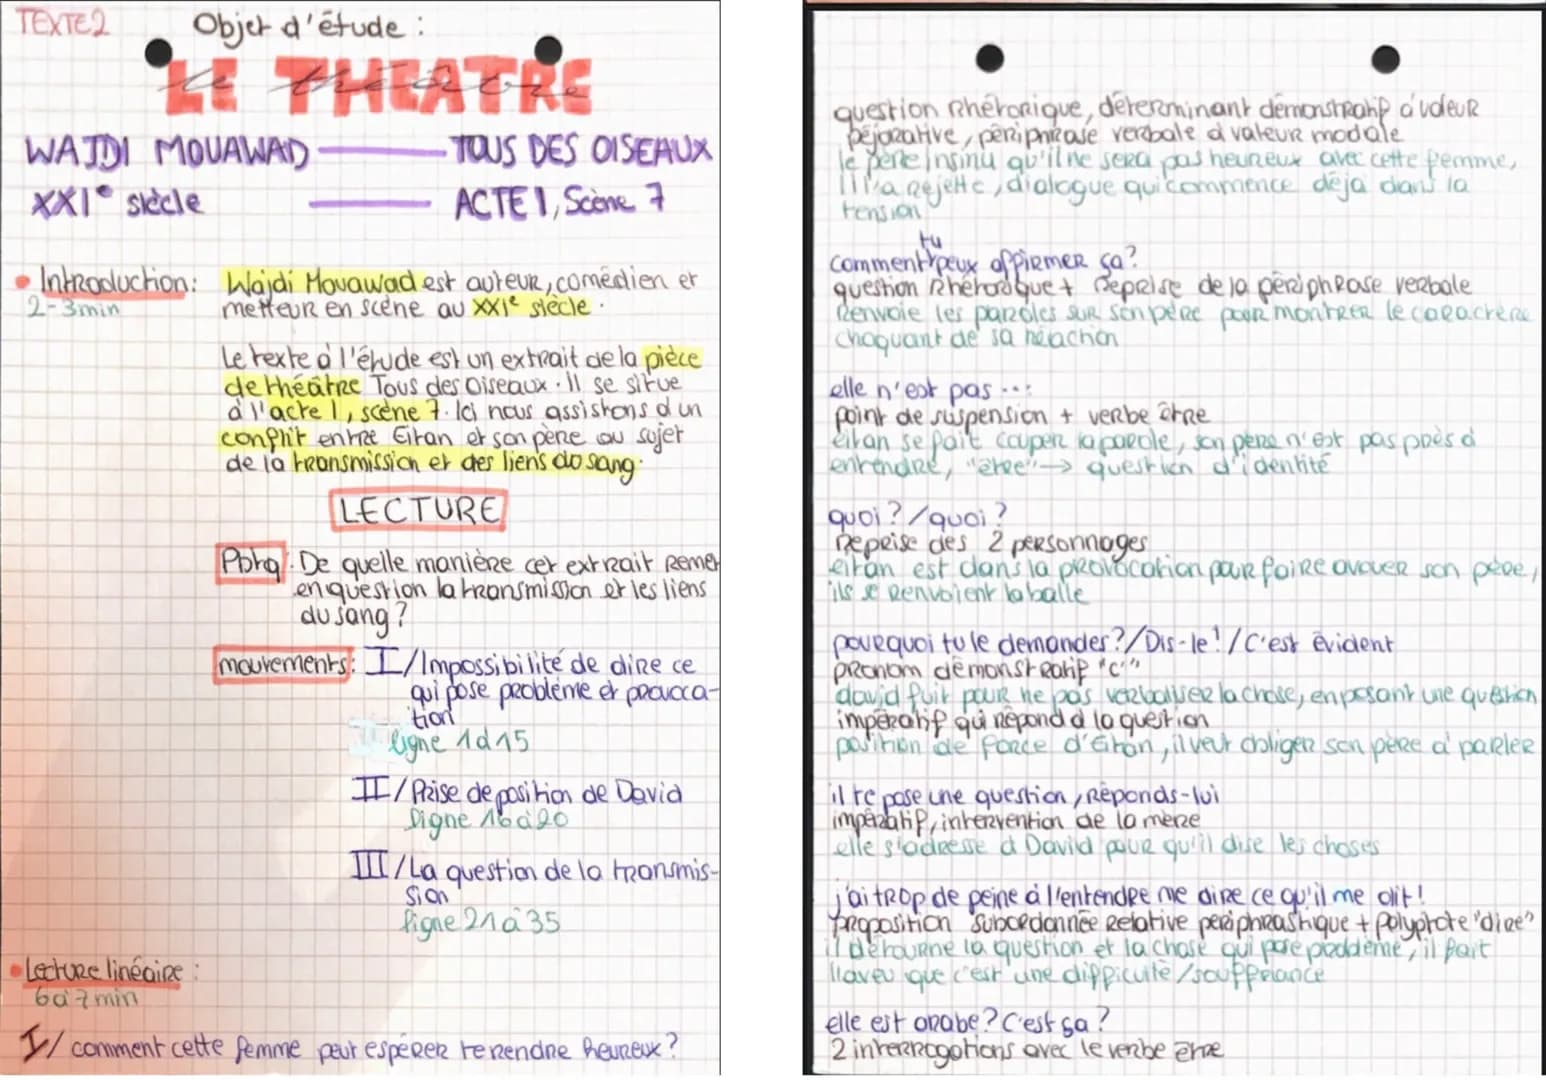 TEXTE 2
Objet d'étude :
LE THEATRE
le théâtre
WAJDI MOUAWAD — TOUS DES OISEAUX
XXIe siècle — ACTE 1, Scène 7
• Introduction :
2-3min
Wajdi Mouawad est auteur, comédien et
metteur en scène au XXIe siècle.
Le texte à l'étude est un extrait de la pièce
de théâtre Tous des Oiseaux. Il se situe
à l'acte 1, scène 7. Ici nous assistons à un
conflit entre Eitan et son père au sujet
de la transmission et des liens du sang.
LECTURE
Pbtq : De quelle manière cet extrait remet
en question la transmission et les liens
du sang ?
mouvements : I/Impossibilité de dire ce
qui pose problème et provoca-
tion
ligne 1 à 15
II/Prise de position de David
ligne 16 à 20
III/La question de la transmis-
sion
ligne 21 à 35
• Lecture linéaire :
6 à 7 min
I/ comment cette femme peut espérer te rendre heureux ?
question rhétorique, déterminant démonstratif à valeur
péjorative, périphrase verbale à valeur modale
le père insinu qu'il ne sera pas heureux avec cette femme,
il l'a rejette, dialogue qui commence déjà dans la
tension
comment tu peux affirmer ça ?
question rhétorique + reprise de la périphrase verbale
renvoie les paroles sur son père pour montrer le caractère
choquant de sa réaction
elle n'est pas ...
point de suspension + verbe être
eitan se fait couper la parole, son père n'est pas près à
entendre, "être" → question d'identité
quoi ? / quoi ?
reprise des 2 personnages
eitan est dans la provocation pour faire avouer son père,
ils se renvoient la balle
pourquoi tu le demandes ? / Dis-le ! / C'est évident
pronom démonstratif "c'"
david fuit pour ne pas verbaliser la chose, en posant une question
impératif qui répond à la question
position de force d'Eitan, il veut obliger son père à parler
il te pose une question, Réponds-lui
impératif, intervention de la mère
elle s'adresse à David pour qu'il dise les choses
j'ai trop de peine à l'entendre me dire ce qu'il me dit !
proposition subordonnée relative périphrastique + polyptote "dire"
il détourne la question et la chose qui pose problème, il fait
l'aveu que c'est une difficulté/souffrance
elle est arabe ? C'est ça ?
2 interrogations avec le verbe être